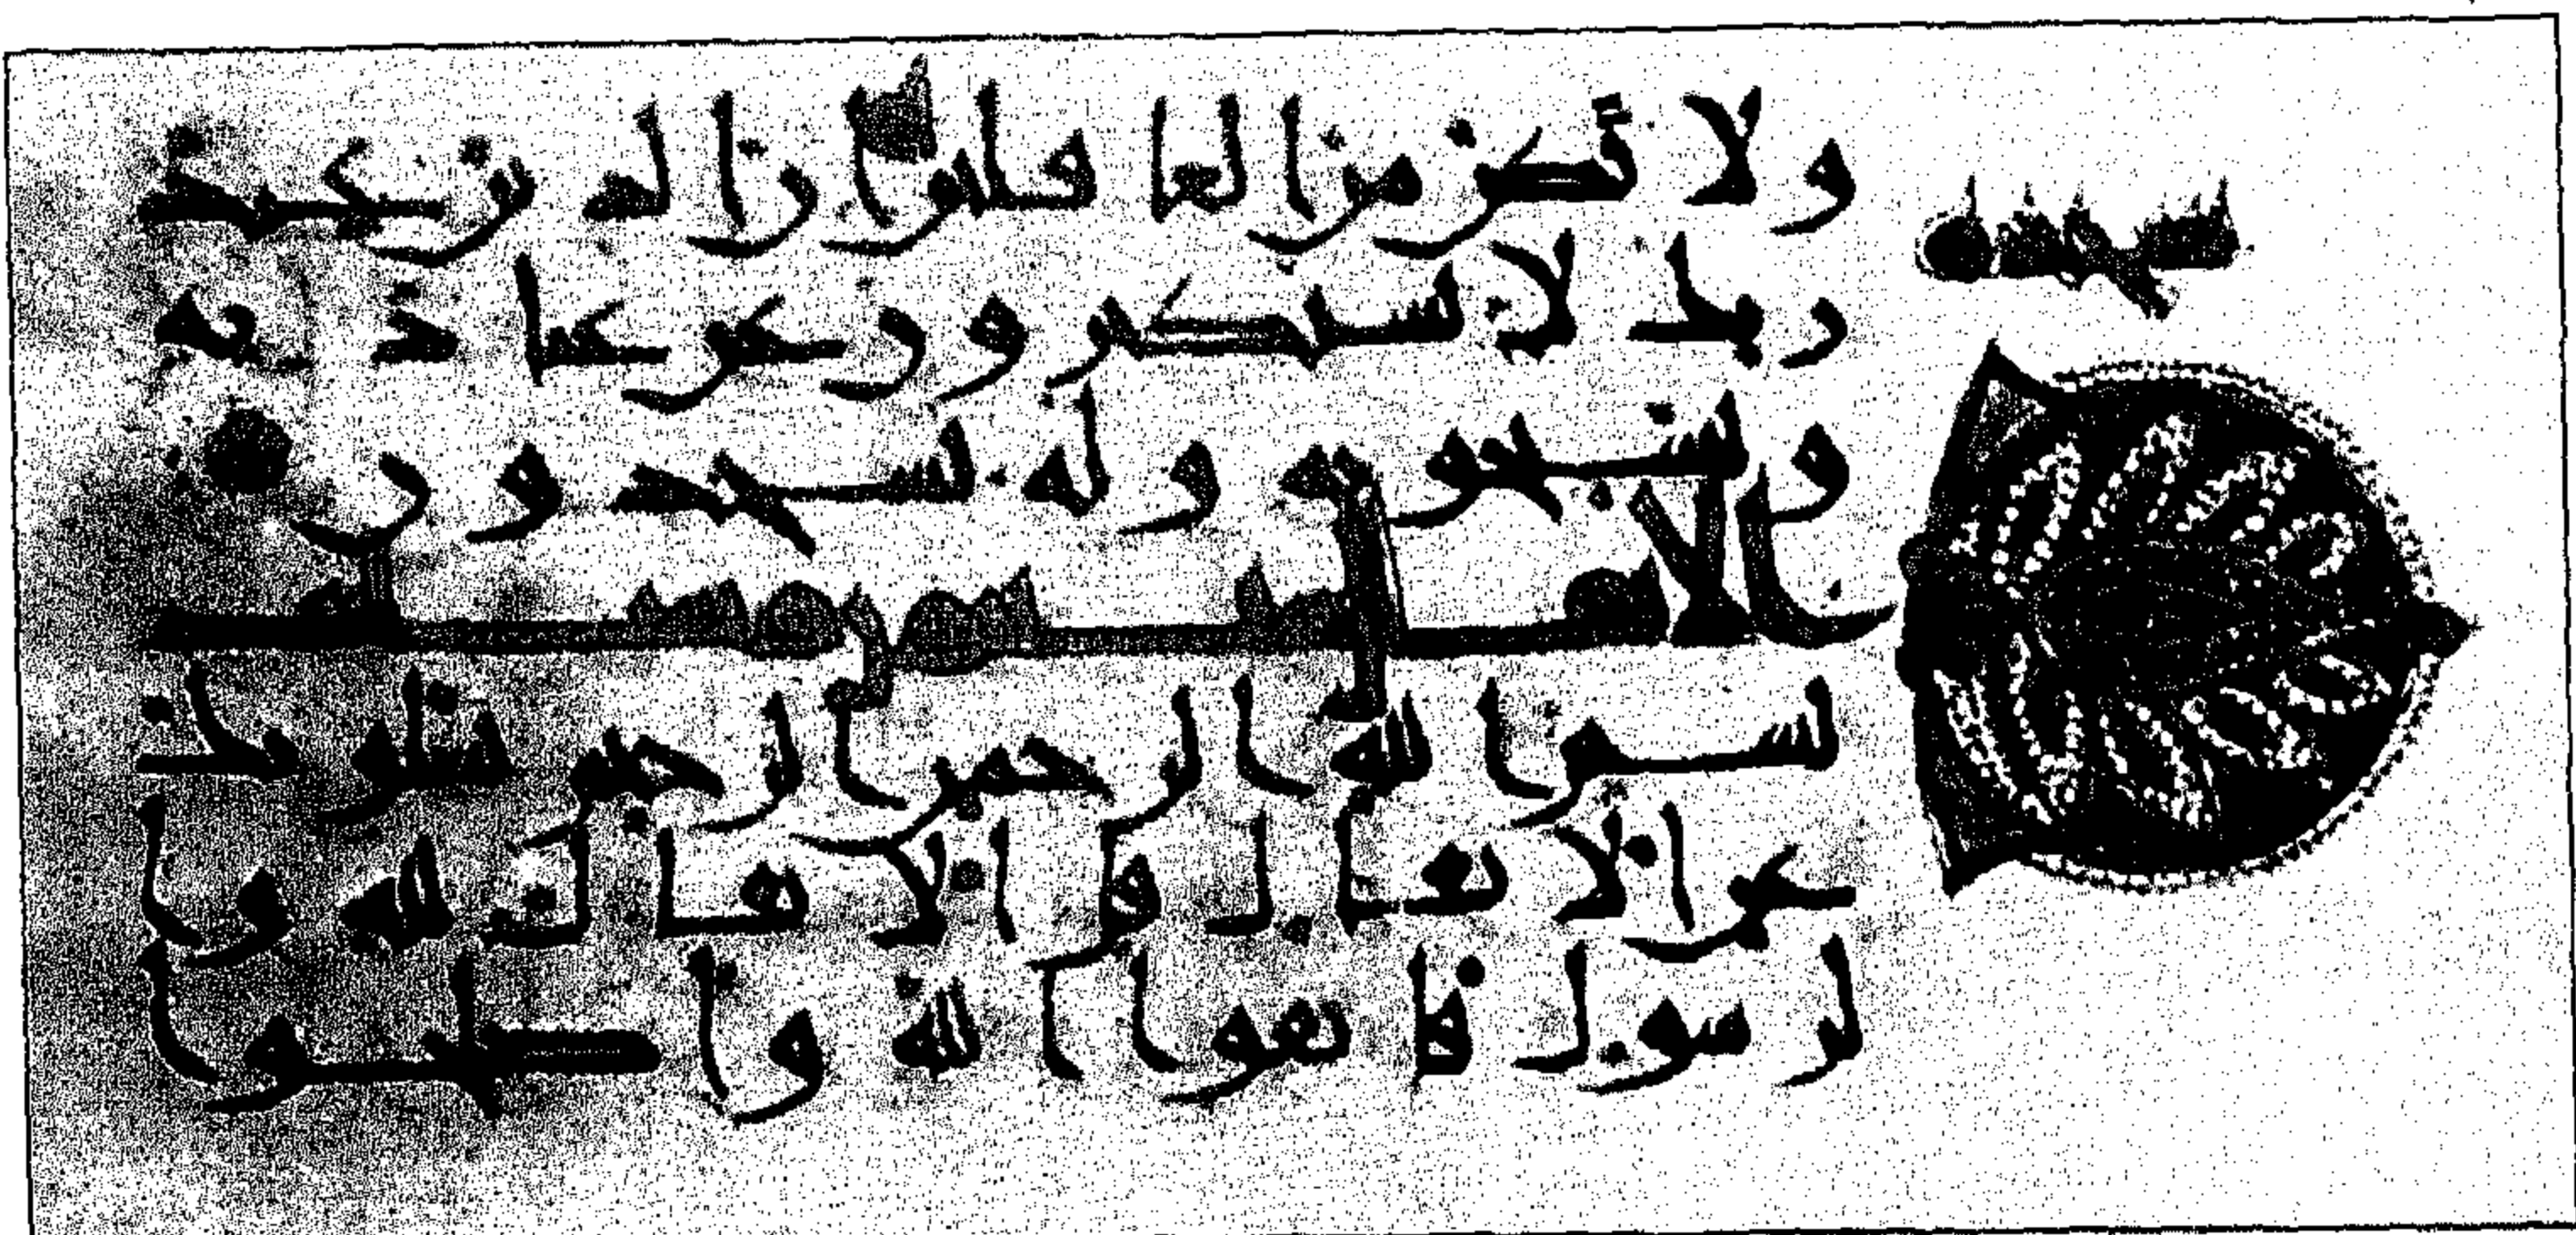 سجدة
ولا تكن من الغفلين ان الذين عند
ربك لا يستكبرون عن عبادته
ويسبحونه وله يسجدون
الانفال
بسم الله الرحمن الرحيم يسلونك
عن الانفال قل الانفال لله وا
لرسول فاتقوا الله واصلحوا